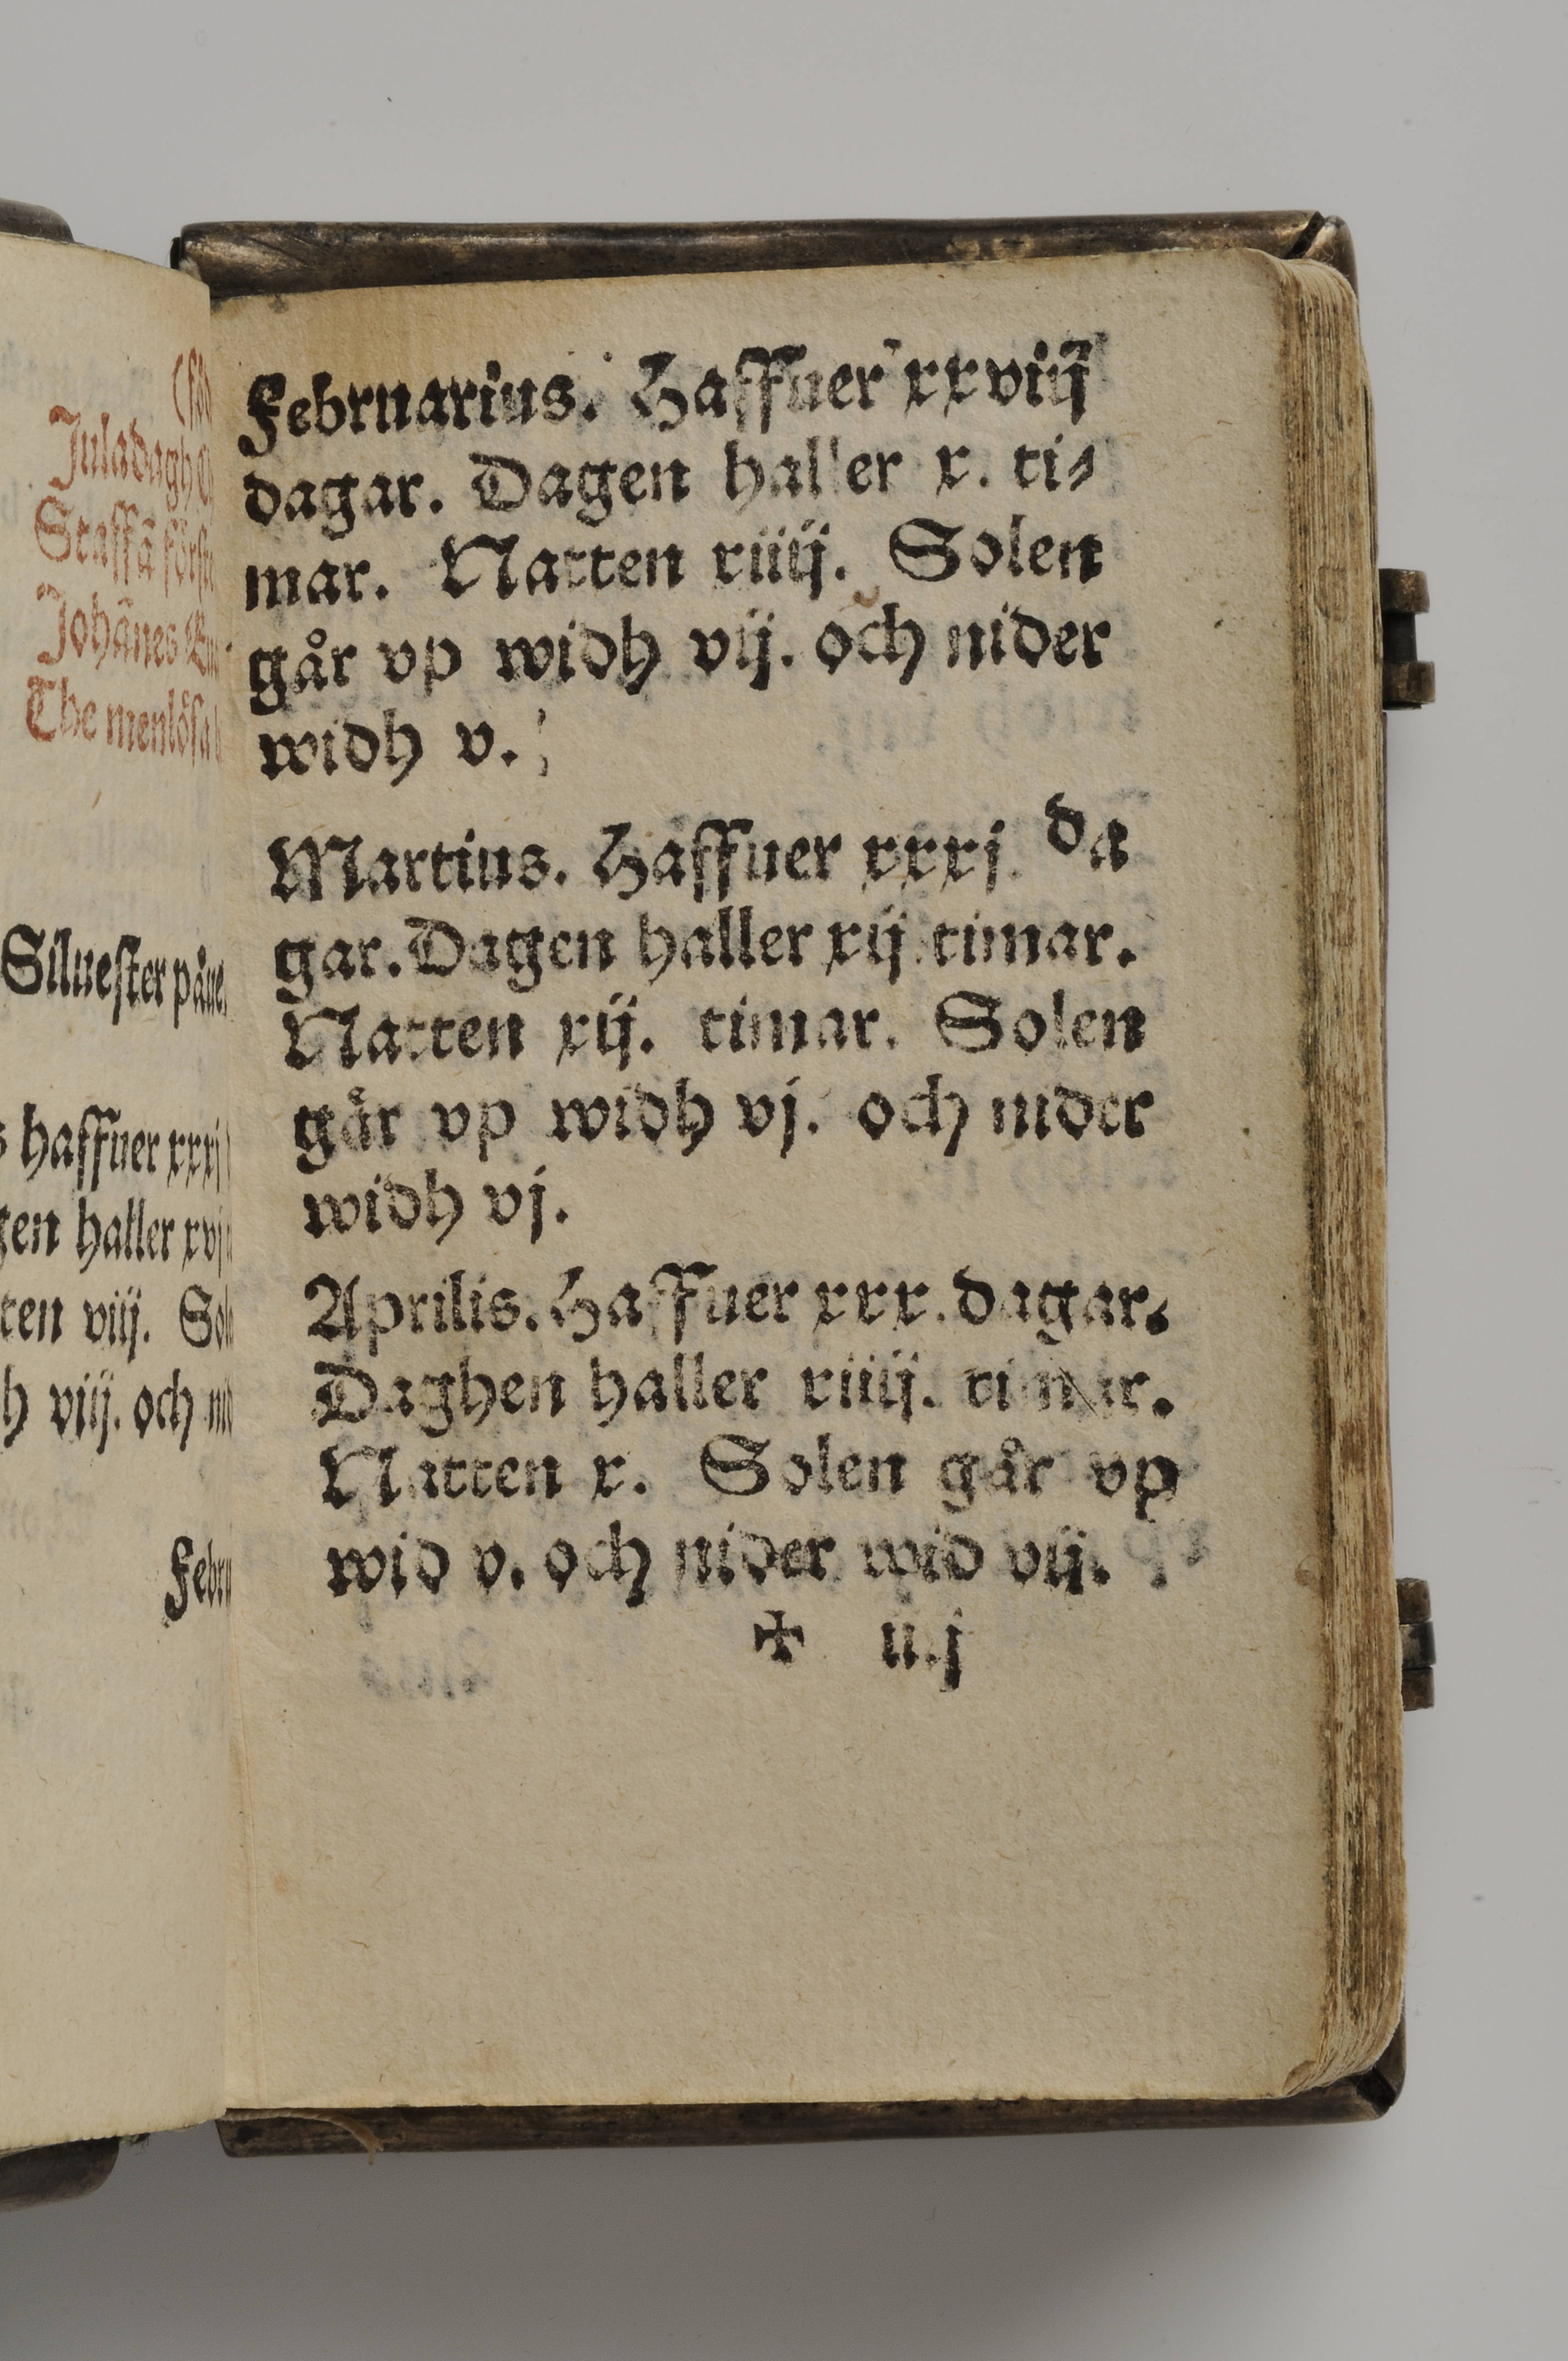 (föd
Juladagh
Staffā förste
Johānes
The menlösa
Siluester påue
haffuer xxxj
gen haller xvj
ten viij. Sol
h viij. och nid
Febru
Februarius. Haffuer xxviij
dagar. Dagen haller x. ti⸗
mar. Natten xiiij. Solen
går vp widh vij. och nider
widh v.
Martius. Haffuer xxxj. da
gar. Dagen haller xij timar.
Natten xij. timar. Solen
går vp widh vj. och nider
widh vj.
Aprilis. Haffuer xxx. dagar.
Daghen haller xiiij. timar.
Natten x. Solen går vp
wid v. och nider wid vij.
✠ iij